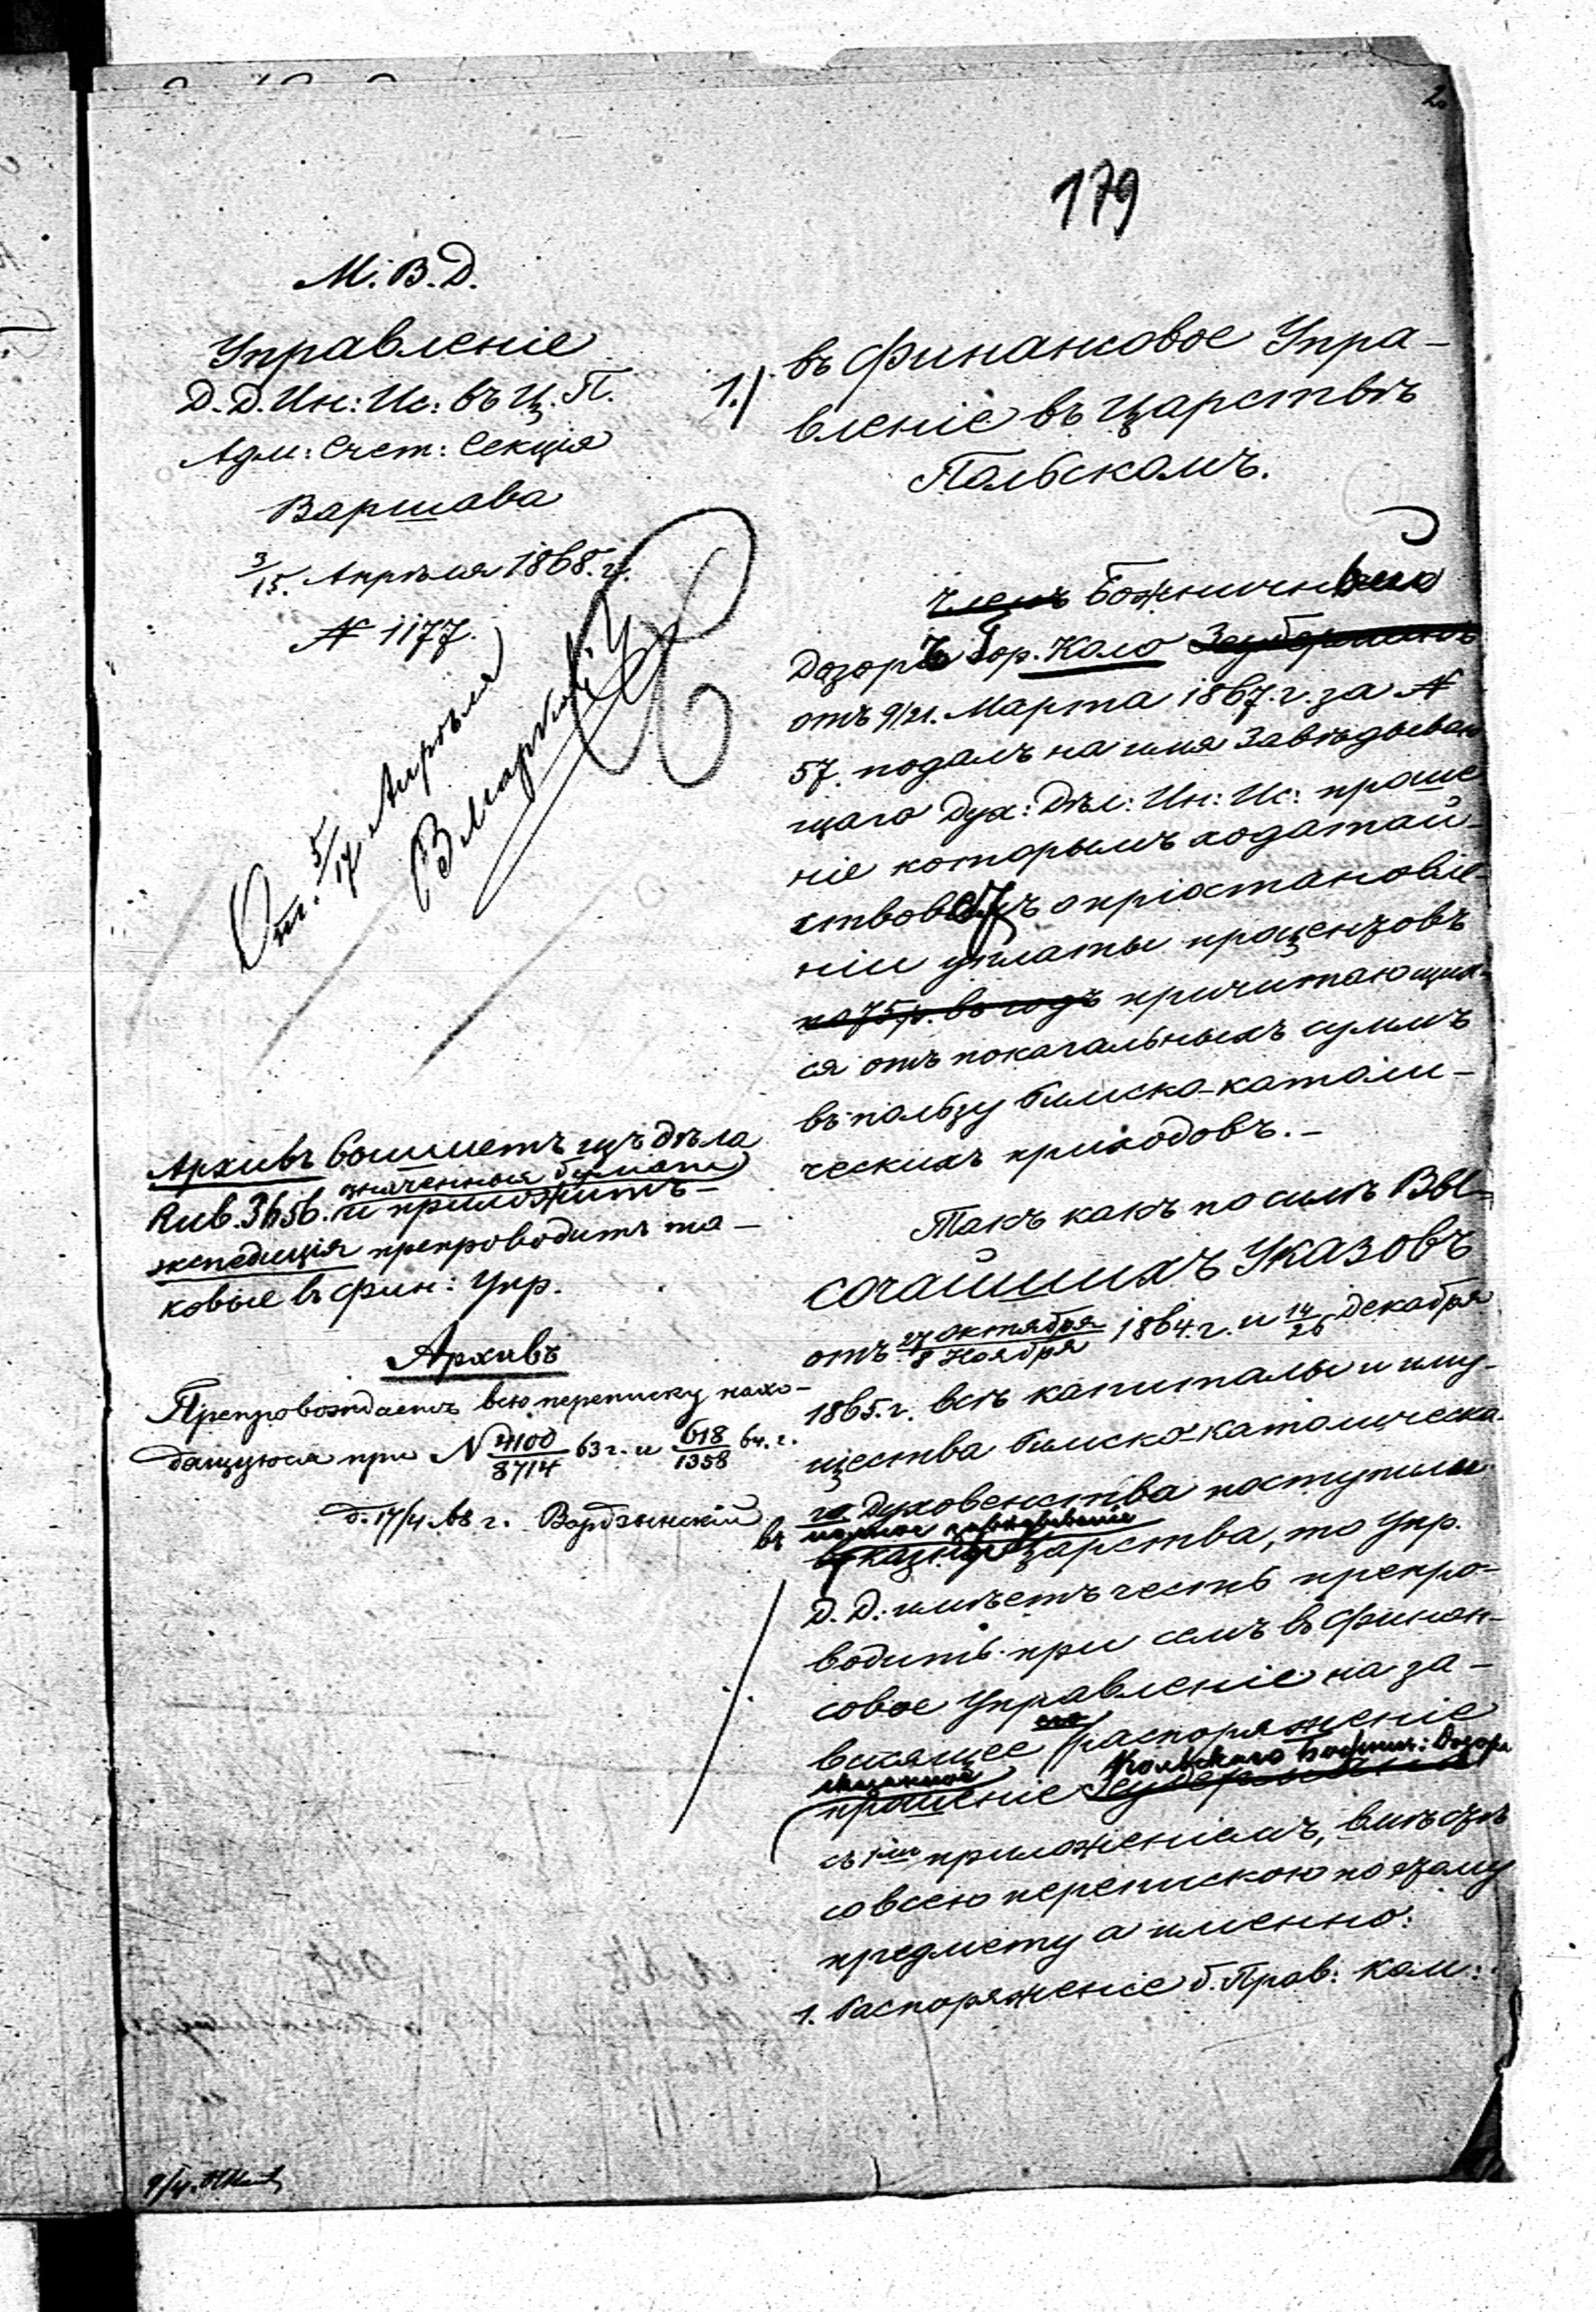 2.
179
М.В.Д.
Управленіе
Д.Д.Ин:Ис: въ Ц.П.
Адм: Счет: Секція
Варшава
3/15. Апрѣля 1868.г.
№ 1177.
От. 5/17 Апрѣля
1./ въ Финансовое Упра-
вленіе въ Царствѣ
Польскомъ.
членъ Божничный
Дозоръ Гор. Коло
отъ 9/21. Марта 1867.г. за №
57. подалъ на имя Завѣдываю
щаго Дух: Дѣл: Ин: Ис: проше
ніе которымъ ходатай-
ствовалъ о пріостановле-
ніи уплаты процентовъ
по 75 р. въ годъ причитающих-
ся отъ покагальныхъ суммъ
въ пользу Римско-католи-
ческихъ приходовъ.-
Такъ какъ по силѣ Вы-
сочайшихъ Указовъ
отъ 27 Октября/8 Ноября 1864.г. и 14/26 Декабря
1865.г. всѣ капиталы и иму-
щества Римско-католическа-
го Духовенства поступили
въ казну Царства, то Упр.
Д.Д. имѣетъ честь препро-
водить при семъ въ Финан-
совое Управленіе на за-
висящее распоряженіе
Кольскаго Божнич: Дозора
прошеніе
съ 1мъ приложеніемъ, вмѣстѣ
со всею перепискою по этому
предмету а именно:
1. Распоряженіе б. Прав: Ком:
Архивъ вышлетъ изъ дѣла
означенныя бумаги
Rub. 3656. и приложитъ-
экспедиція препроводитъ та-
ковые въ Фин: Упр.
Архивъ
Препровождаетъ всю переписку нахо-
дящуюся при N 4100/8714 63 г. и 618/1358 64. г.
д. 17/4 68 г.
9/4.